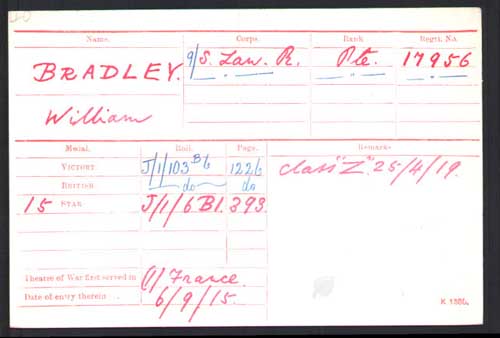 Name. Corps. Rank Regtl. No.
BRADLEY. 9/S. Lan. R. Pte. 17956
" " "
William
Medal. Roll. Page. Remarks
VICTORY J/1/103 B6 1226 Class "Z" 25/4/19.
BRITISH do do
15 STAR J/1/6 B1. 393.
Theatre of War first served in (1) France.
Date of entry therein 6/9/15.
K 1380.